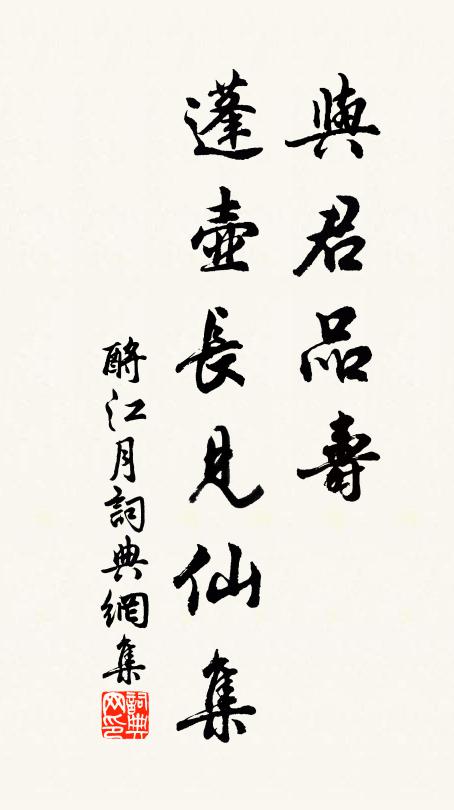 與君品壽
蓬壺長見仙集
酹江月詞典網集
詞典網印